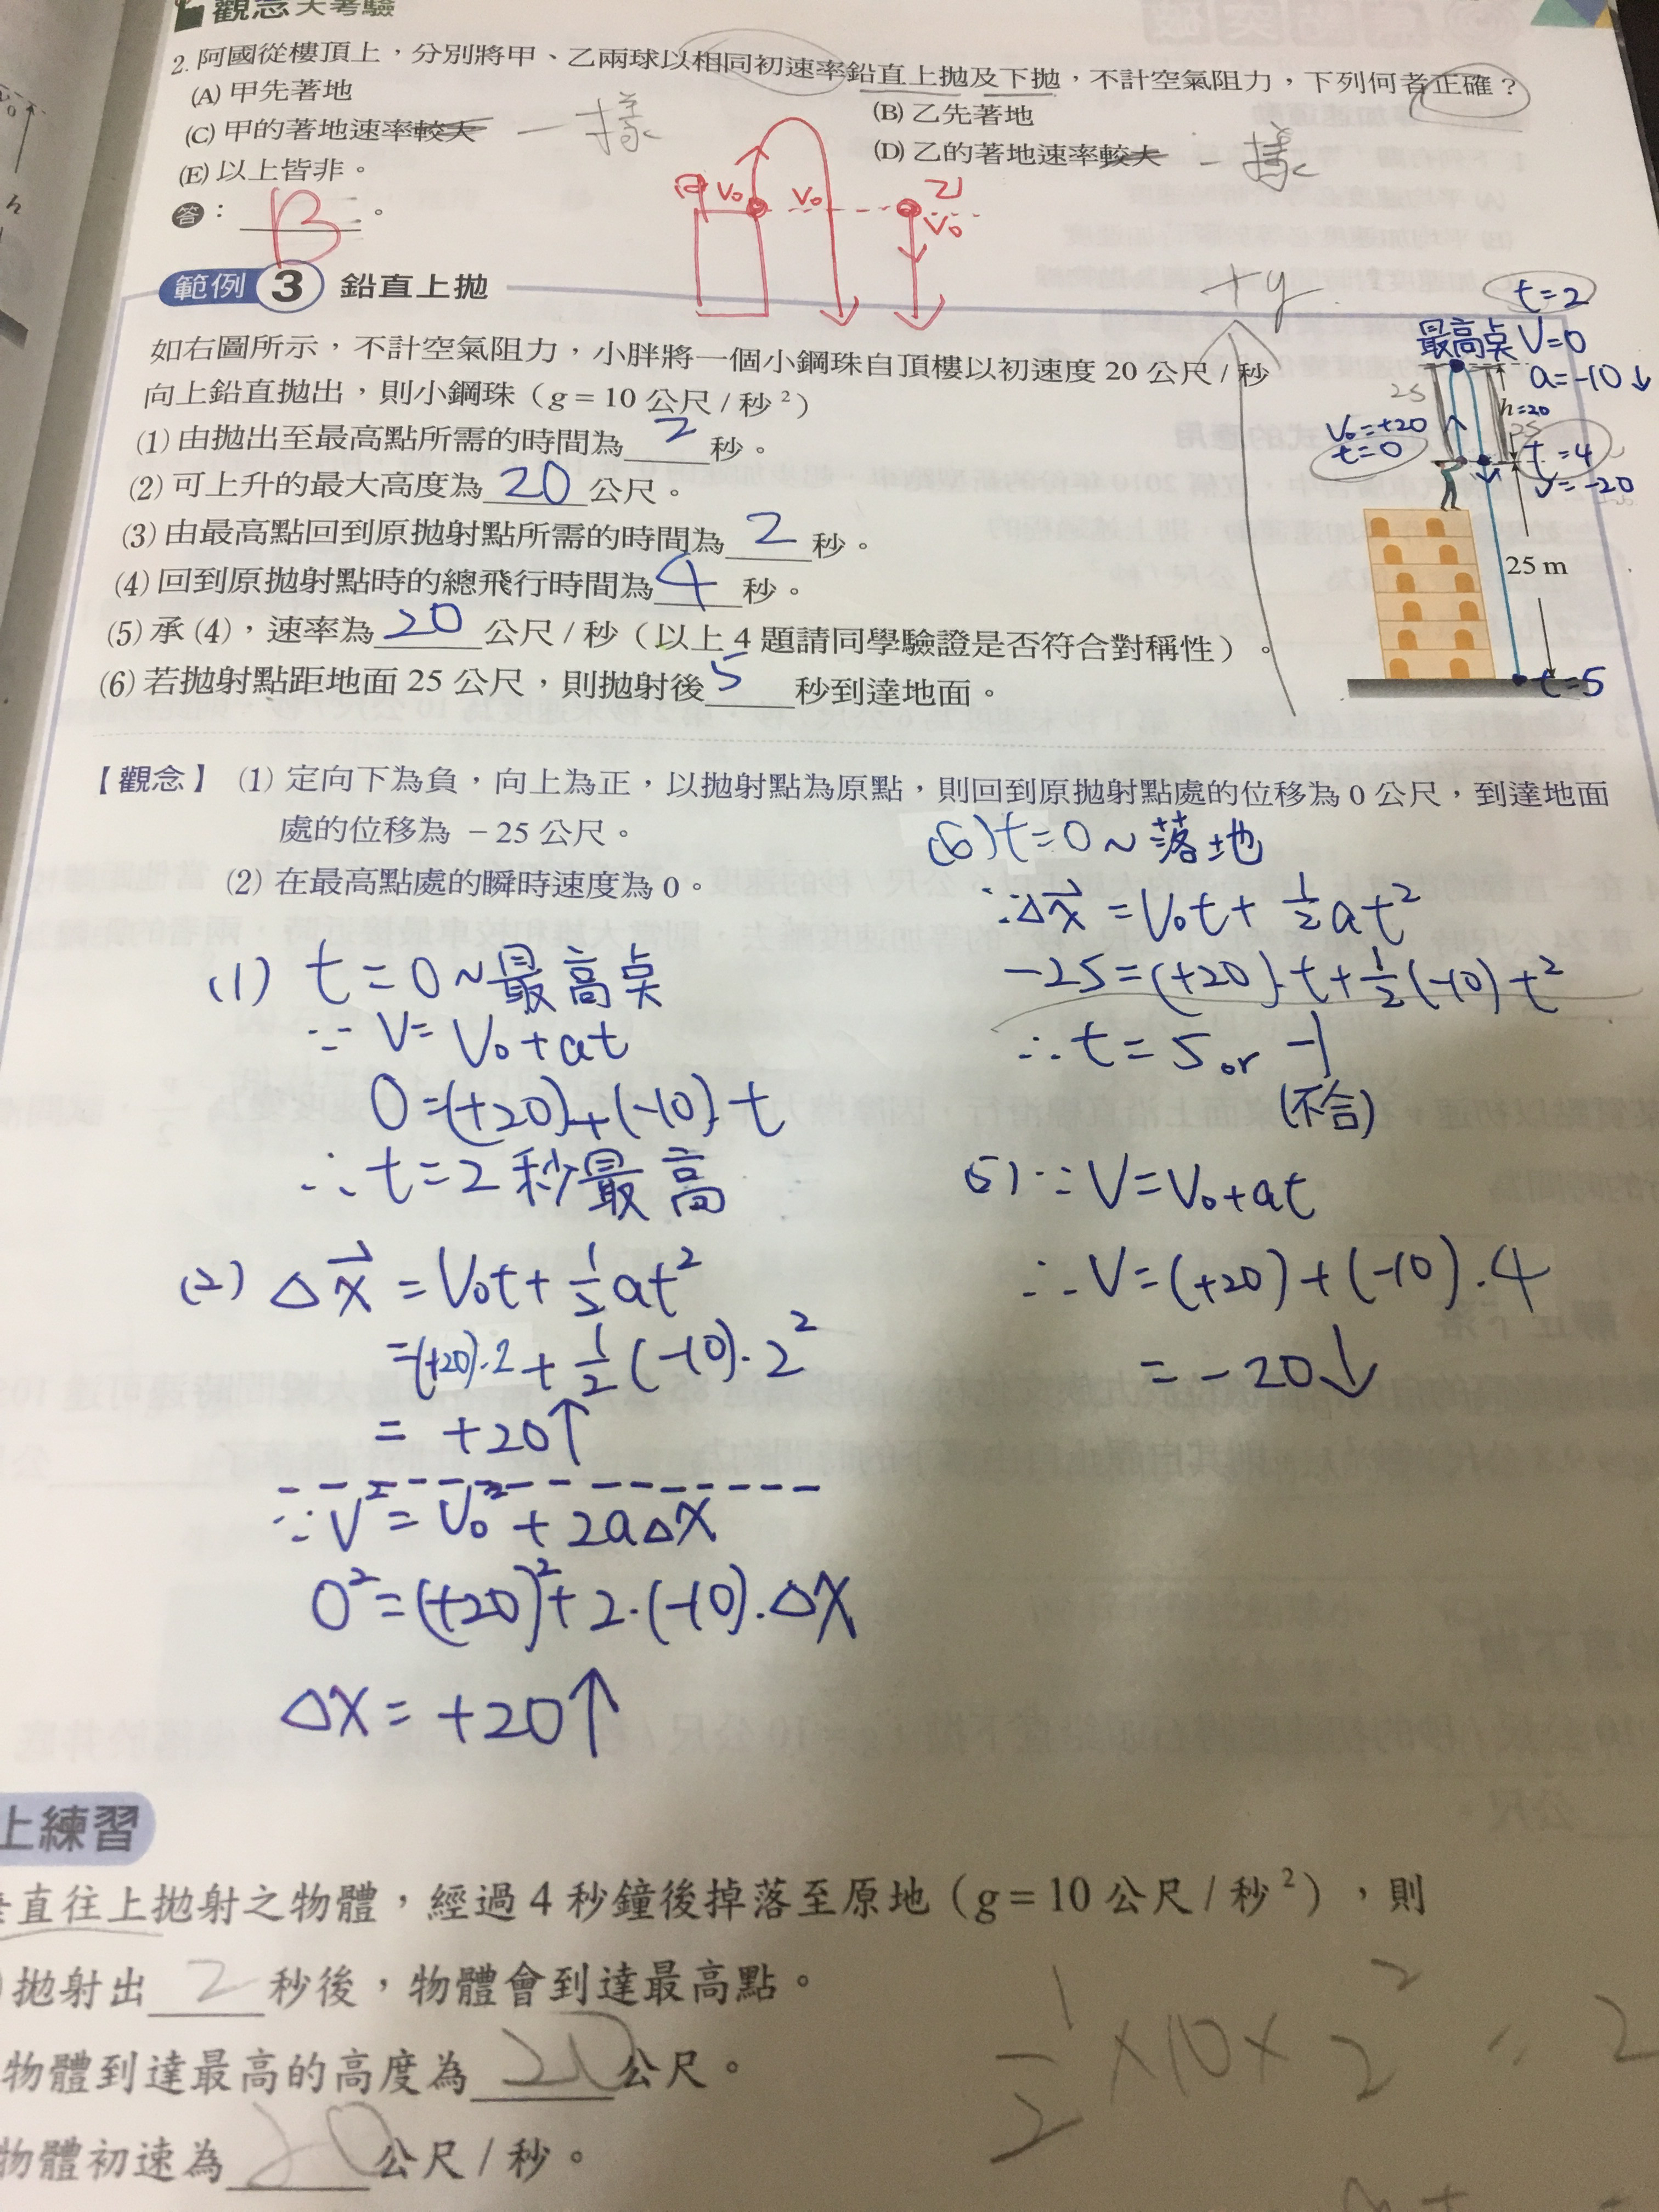 觀念大考驗
2. 阿國從樓頂上，分別將甲、乙兩球以相同初速率鉛直上拋及下拋，不計空氣阻力，下列何者正確？
(A) 甲先著地
(B) 乙先著地
(C) 甲的著地速率較大 一樣
(D) 乙的著地速率較大 一樣
(E) 以上皆非。
答： B 。
甲 V₀ V₀ 乙 V₀
範例 3 鉛直上拋
如右圖所示，不計空氣阻力，小胖將一個小鋼珠自頂樓以初速度 20 公尺 / 秒
向上鉛直拋出，則小鋼珠（g = 10 公尺 / 秒²）
(1) 由拋出至最高點所需的時間為 2 秒。
(2) 可上升的最大高度為 20 公尺。
(3) 由最高點回到原拋射點所需的時間為 2 秒。
(4) 回到原拋射點時的總飛行時間為 4 秒。
(5) 承 (4)，速率為 20 公尺 / 秒（以上 4 題請同學驗證是否符合對稱性）。
(6) 若拋射點距地面 25 公尺，則拋射後 5 秒到達地面。
+y
t=2
最高点 V=0
a=-10↓
25
h=20
25
V₀=+20
t=0
t=4
V=-20
25 m
t=5
【觀念】 (1) 定向下為負，向上為正，以拋射點為原點，則回到原拋射點處的位移為 0 公尺，到達地面
處的位移為 －25 公尺。
(2) 在最高點處的瞬時速度為 0。
(1) t=0~最高点
∵ V=V₀+at
0=(+20)+(-10)·t
∴ t=2秒最高
(2) Δx⃗ =V₀t+½at²
=(+20)·2+½(-10)·2²
= +20↑
∵V²=V₀²+2aΔX
0²=(+20)²+2·(-10)·ΔX
ΔX=+20↑
(6) t=0~落地
∵Δx⃗ =V₀t+½at²
-25=(+20)·t+½(-10)t²
∴t=5 or -1
(不合)
(5) ∵V=V₀+at
∴V=(+20)+(-10)·4
=-20↓
上練習
直往上拋射之物體，經過 4 秒鐘後掉落至原地（g = 10 公尺 / 秒²），則
拋射出 2 秒後，物體會到達最高點。
物體到達最高的高度為 20 公尺。
物體初速為 20 公尺 / 秒。
½×10×2²=2